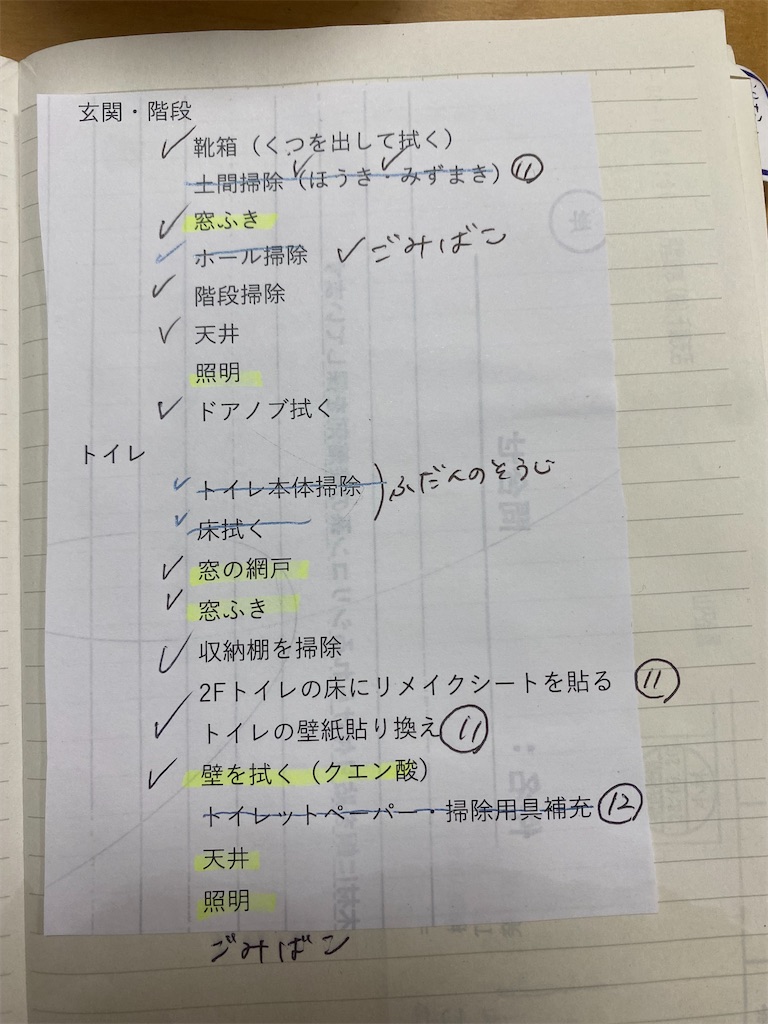 玄関・階段
✓ 靴箱（くつを出して拭く）
土間掃除（ほうき・みずまき） ⑪
✓ 窓ふき
✓ ホール掃除 ✓ ごみばこ
✓ 階段掃除
✓ 天井
照明
✓ ドアノブ拭く
トイレ
✓ トイレ本体掃除 ）ふだんのそうじ
✓ 床拭く
✓ 窓の網戸
✓ 窓ふき
✓ 収納棚を掃除
2Fトイレの床にリメイクシートを貼る ⑪
✓ トイレの壁紙貼り換え ⑪
✓ 壁を拭く（クエン酸）
トイレットペーパー・掃除用具補充 ⑫
天井
照明
ごみばこ